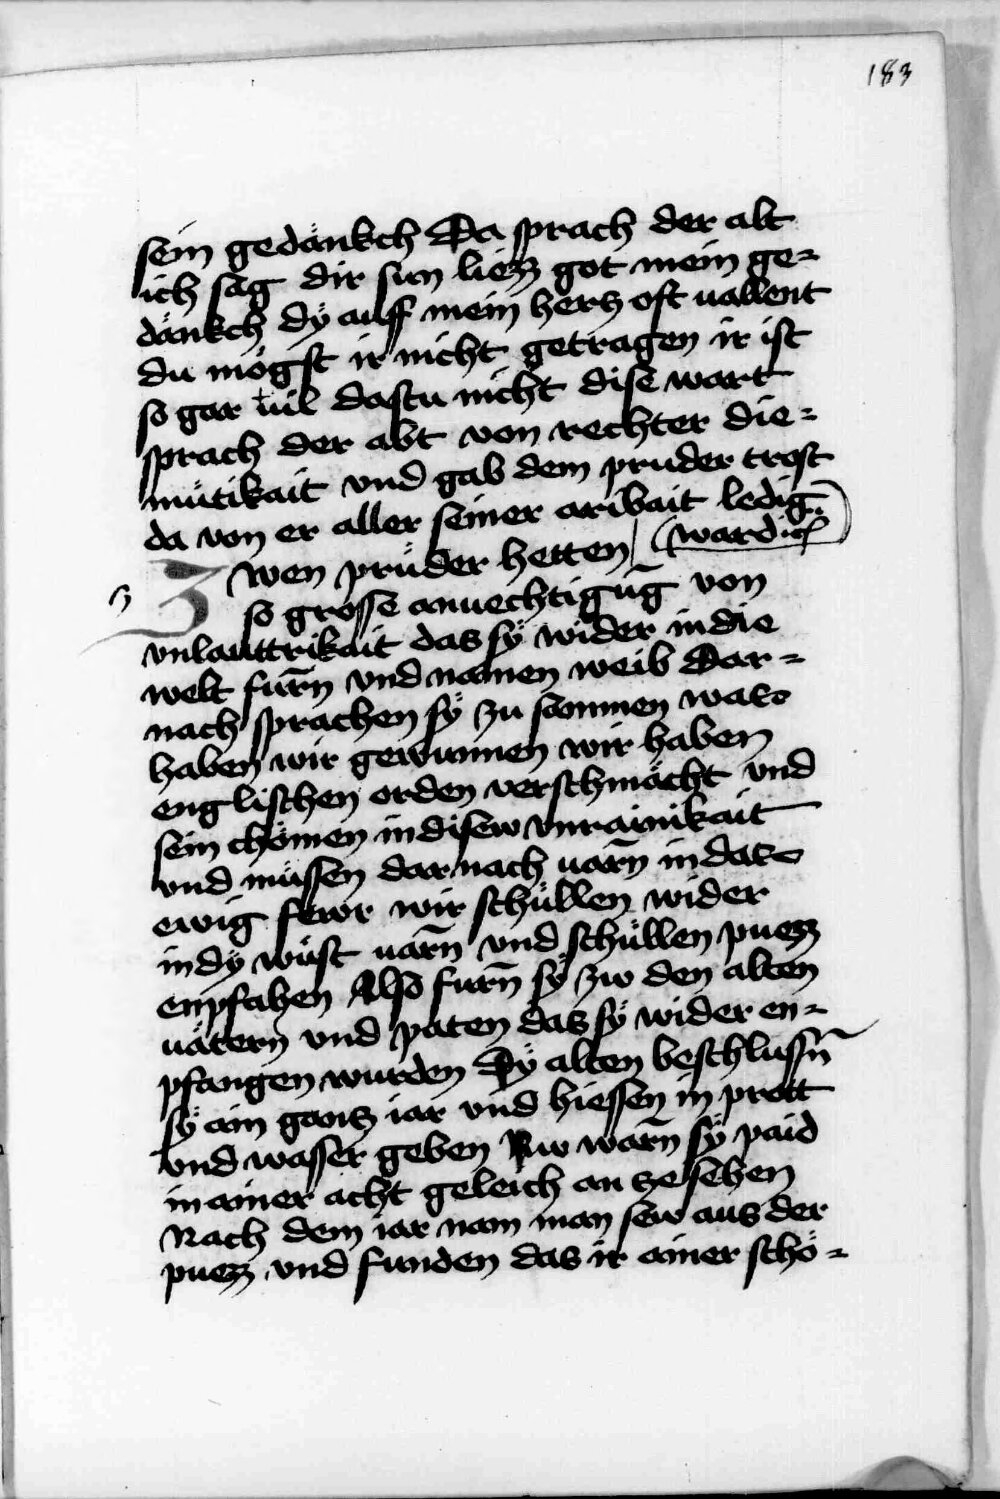 183
sein gedänkch Da sprach der alt
ich sag dir sun liezz got mein ge=
dänkch dÿ auff mein hertz oft uallent
du mögst ir nicht getragen ir ist
so gar uil dastu nicht dise wort
sprach der abt von rechter die=
mütikait vnd gab dem pruder trost
da von er aller seiner aribait ledig
ward
Zwen prüder hetten
so grosse anuechtigūg von
vnlauttrikait das sÿ wider in die
welt furn̄ vnd namen weib Dar=
nach sprachen sÿ zu sammen was
haben wir gewunnen wir haben
englischen orden verschmächt vnd
sein chömen in disew vnrainikait
vnd müssen dar nach uarn̄ in das
ewig fewr wir schüllen wider
in dÿ wüst uarn̄ vnd schüllen puezz
enpfahen Also furn̄ sÿ zw den alten
uätern vnd paten das sÿ wider en=
pfangen wurden Dÿ alten beschlussn̄
sÿ ain gantz iar vnd hiessen in prott
vnd wasser geben Nw warn̄ sÿ paid
in ainer acht geleich an ze sehen
Nach dem iar nam man sew aus der
puezz vnd funden das ir ainer schö=